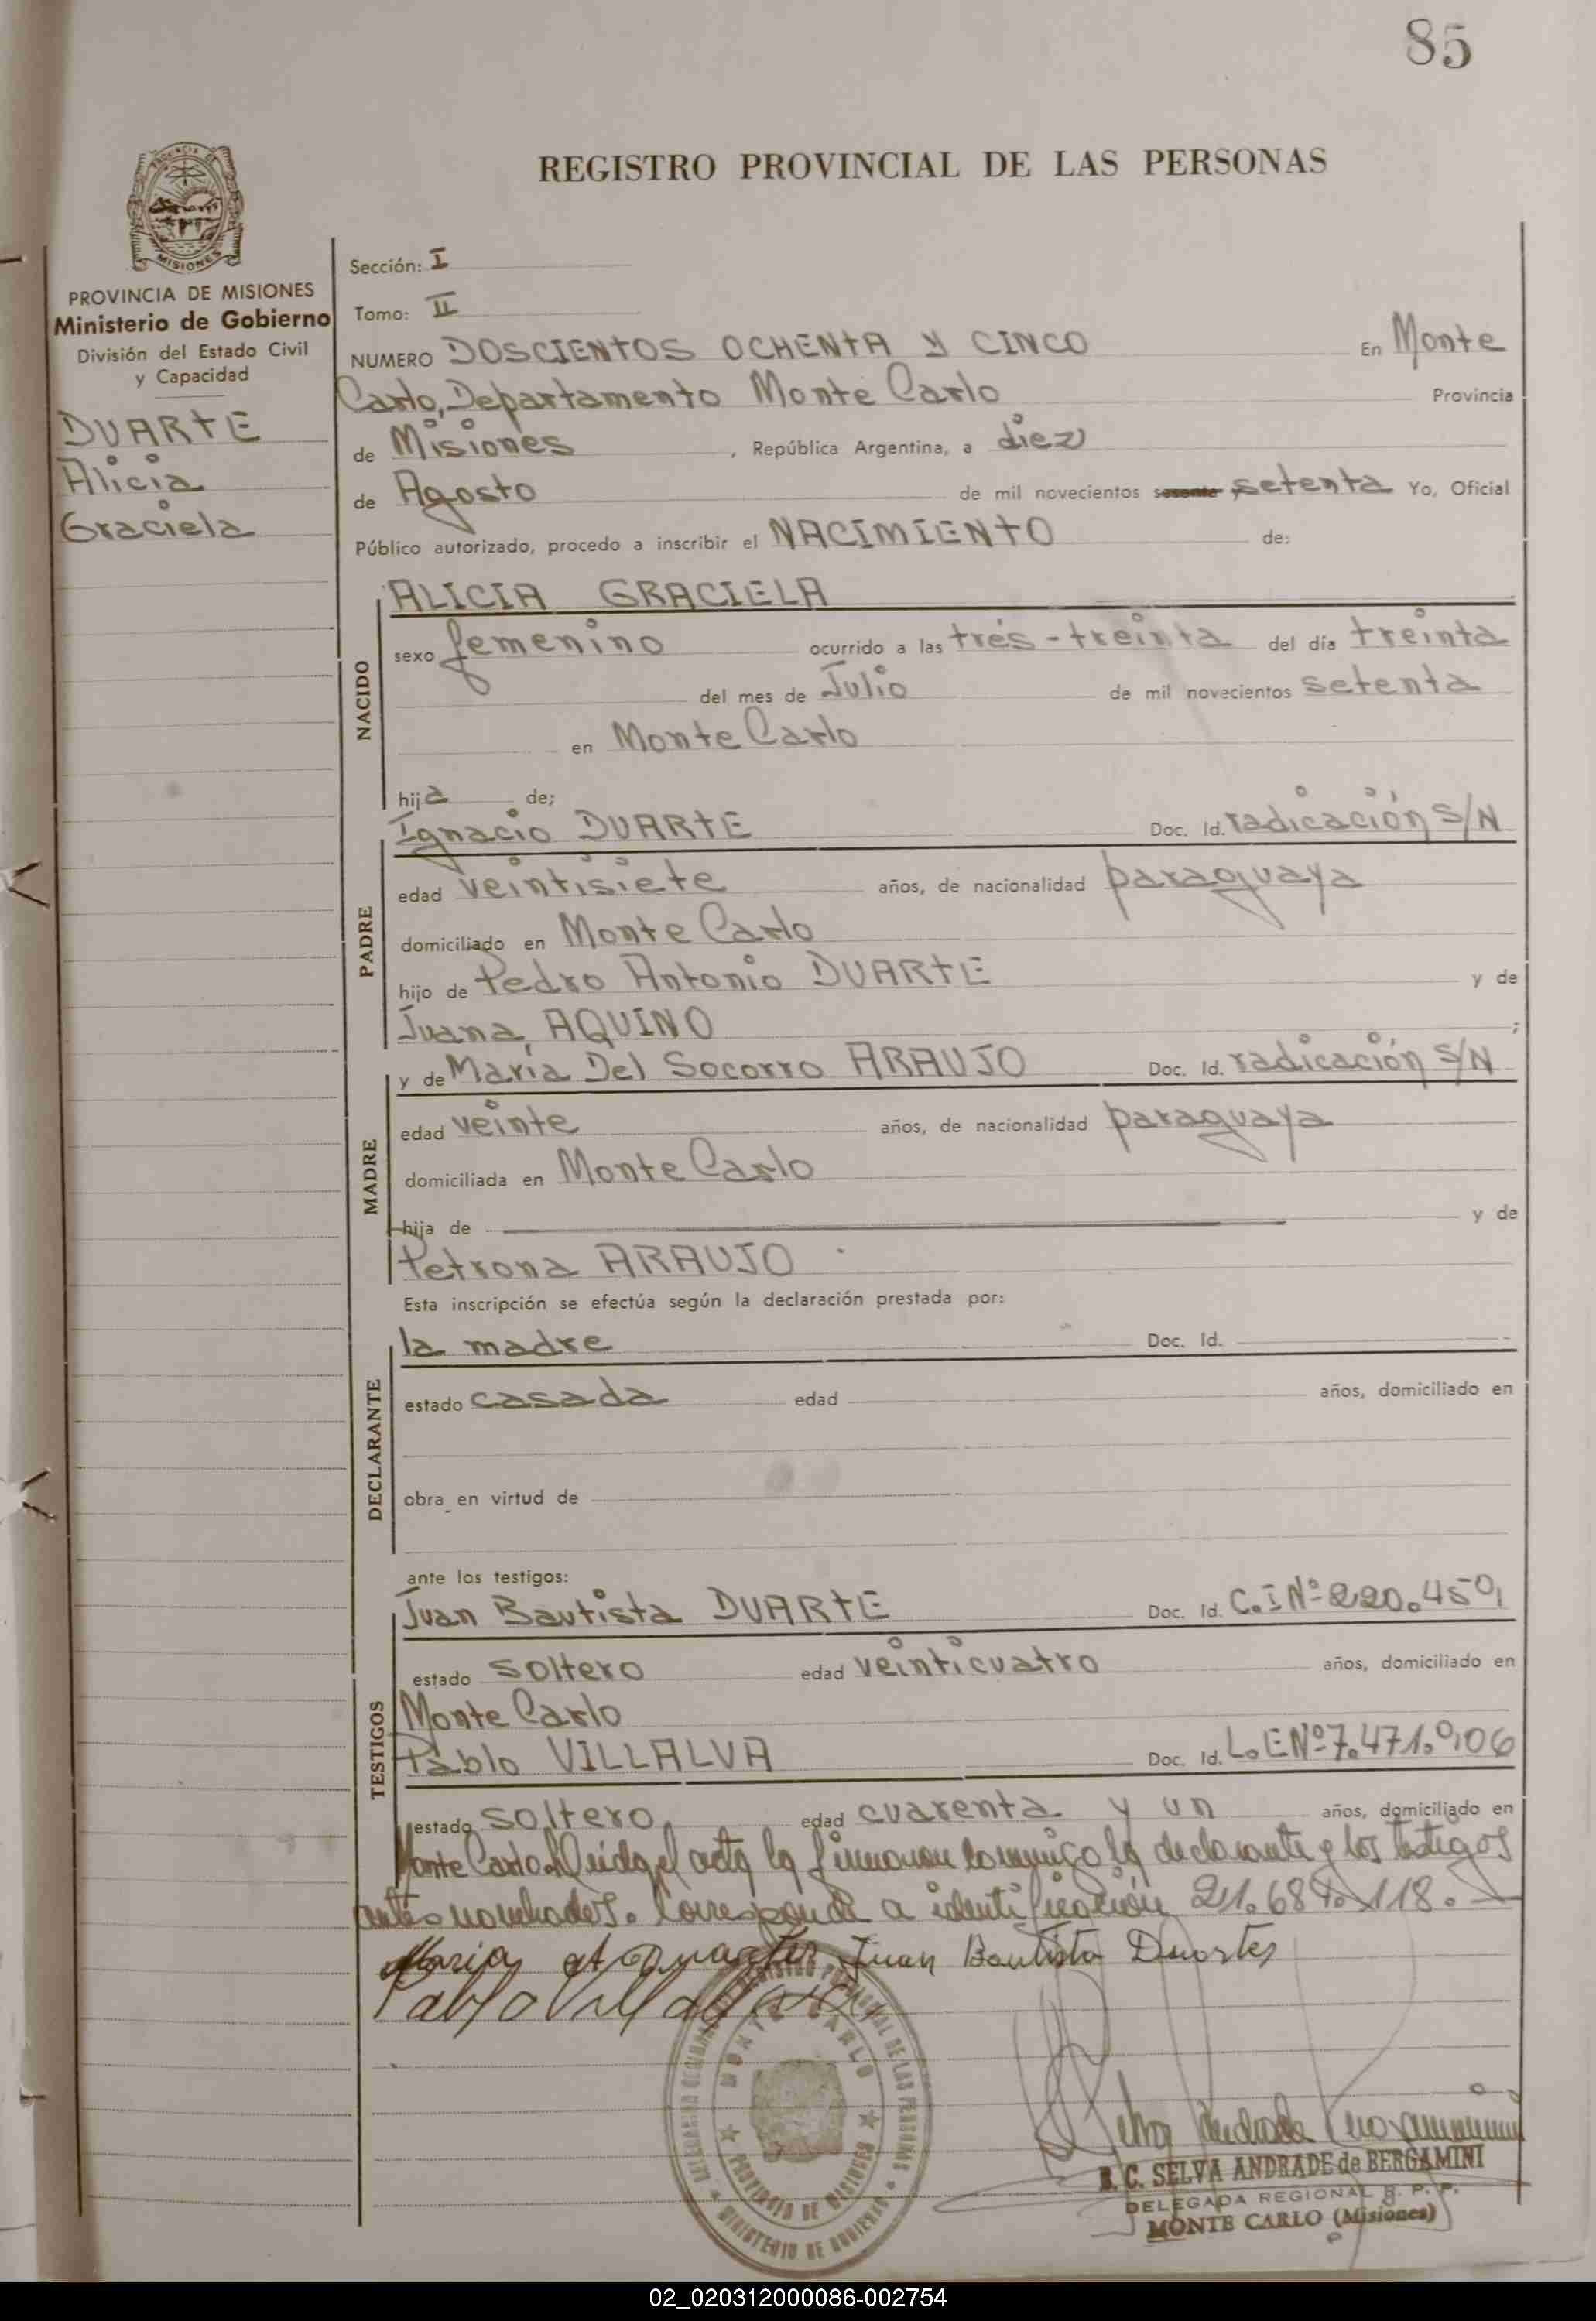 85
REGISTRO PROVINCIAL DE LAS PERSONAS
PROVINCIA DE
MISIONES
PROVINCIA DE MISIONES
Ministerio de Gobierno
División del Estado Civil
y Capacidad
DUARTE
Alicia
Graciela
Sección: I
Tomo: II
NUMERO DOSCIENTOS OCHENTA Y CINCO En Monte
Carlo, Departamento Monte Carlo Provincia
de Misiones , República Argentina, a diez
de Agosto de mil novecientos sesenta setenta Yo, Oficial
Público autorizado, procedo a inscribir el NACIMIENTO de:
NACIDO
ALICIA GRACIELA
sexo femenino ocurrido a las tres - treinta del día treinta
del mes de Julio de mil novecientos setenta
en Monte Carlo
hija de;
PADRE
Ignacio DUARTE Doc. Id. radicación S/N
edad veintisiete años, de nacionalidad paraguaya
domiciliado en Monte Carlo
hijo de Pedro Antonio DUARTE y de
Juana AQUINO ;
MADRE
y de María Del Socorro ARAUJO Doc. Id. radicación S/N
edad veinte años, de nacionalidad paraguaya
domiciliada en Monte Carlo
hija de y de
Petrona ARAUJO
Esta inscripción se efectúa según la declaración prestada por:
DECLARANTE
la madre Doc. Id.
estado casada edad años, domiciliado en
obra en virtud de
ante los testigos:
TESTIGOS
Juan Bautista DUARTE Doc. Id. C.I Nº 220.450
estado soltero edad veinticuatro años, domiciliado en
Monte Carlo
Pablo VILLALVA Doc. Id. L.E Nº 7.471.906
estado soltero edad cuarenta y un años, domiciliado en
Monte Carlo. Leida el acta la firmaron conmigo la declarante y los testigos
antes nombrados. Corresponde a identificación 21.684.118.
Maria Juan Bautista Duartes
Pablo Villalva
REGISTRO PROVINCIAL DE LAS PERSONAS
MONTE CARLO
PROVINCIA DE MISIONES
MINISTERIO DE GOBIERNO
Selva Andrade
B. C. SELVA ANDRADE de BERGAMINI
DELEGADA REGIONAL R. P. P.
MONTE CARLO (Misiones)
02_020312000086-002754